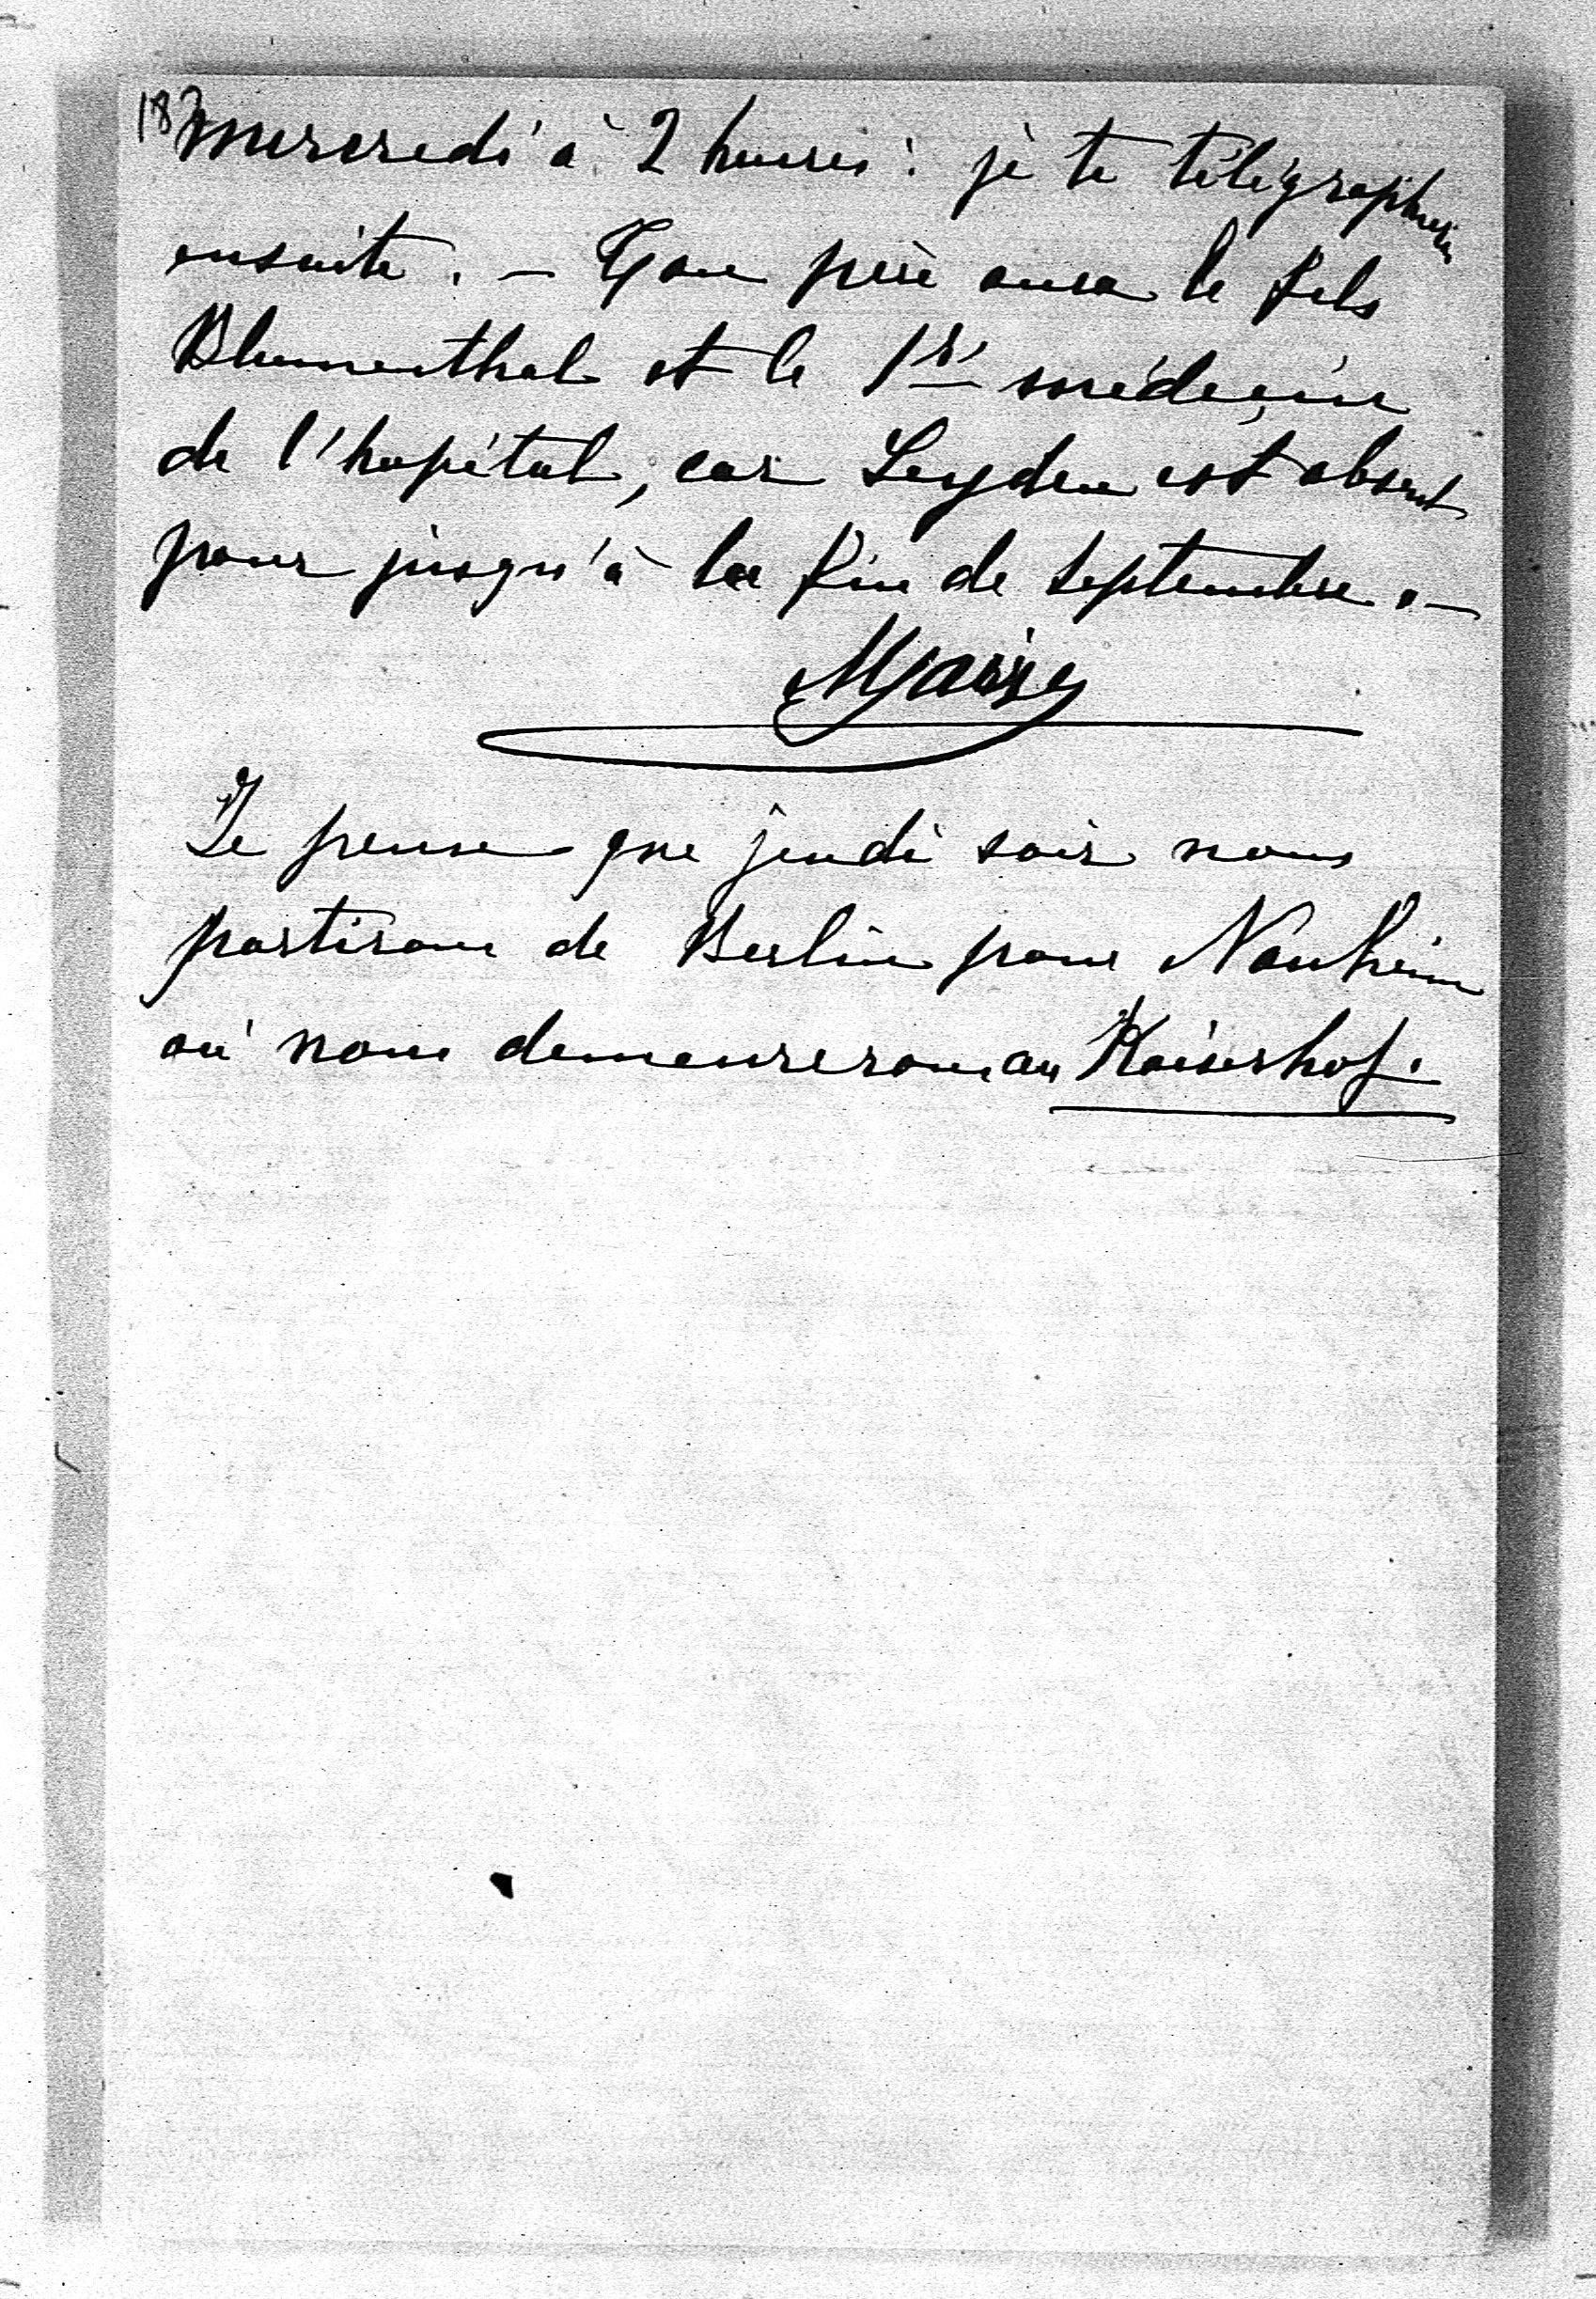 187
mercredi à 2 heures : je te télégraphierai
ensuite. — Ton père aura le fils
Blumenthal et le 1er médecin
de l'hopital, car Leyden est absent
pour jusqu'à la fin de septembre. —
Je pense que jeudi soir nous
partirons de Berlin pour Nauheim
où nous demeurerons au Kaiserhof.